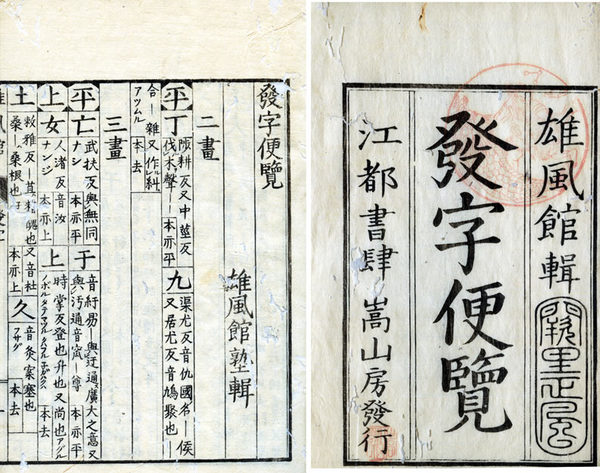 雄風館輯
發字便覽
江都書肆 嵩山房發行
發字便覽
雄風館塾輯
二畫
平丁 陟耕反又中莖反
伐木聲— 本亦平
九 渠尤反音仇國名—侯
又居尤反音鳩聚也—
合—雜又作糾 本去
アツムル
三畫
平亡 武扶反與無同
ナシ 本亦平
于 音紆易—與迂通廣大之意又
與汚通音窊—尊 本亦平
上女 人渚反音汝
ナンジ 本亦上
上 時掌反登也升也又尚也アグル
ノボル タテマツル 本去
土 敕雅反—苴 也又音杜
桑—桑根也 本亦上
久 音灸 塞也
フサグ 本去
雄風館